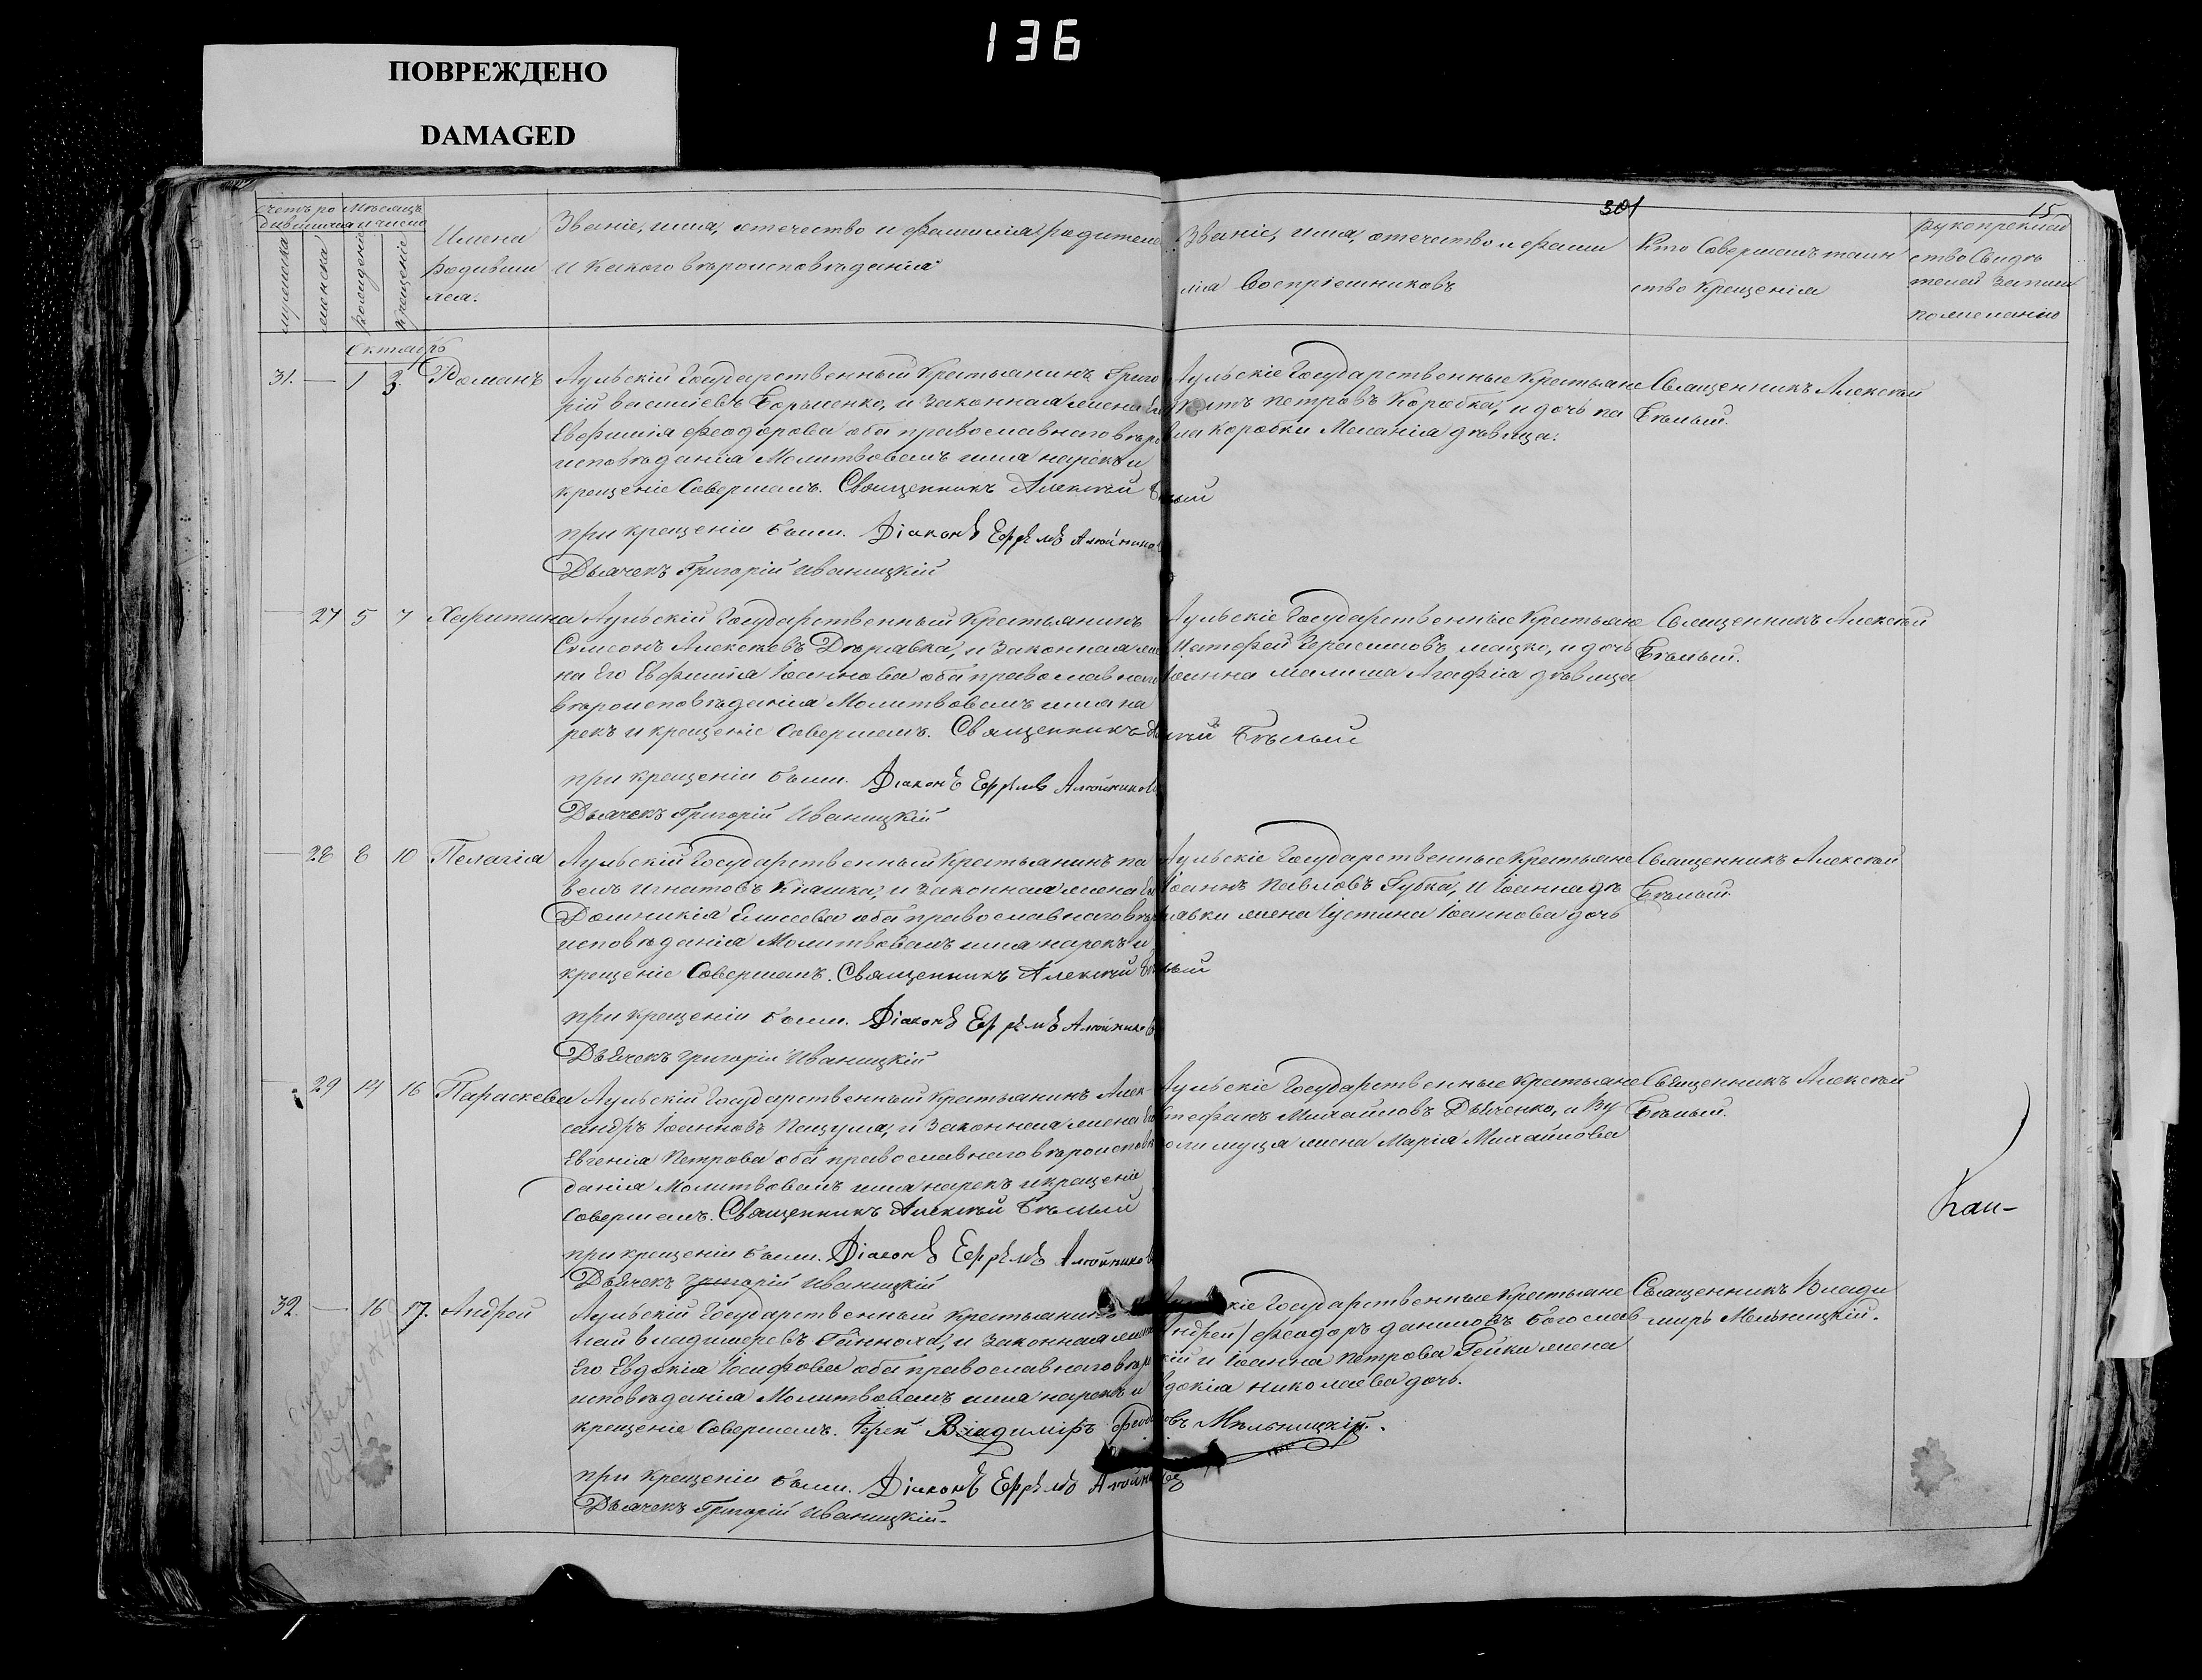 136
ПОВРЕЖДЕНО
DAMAGED
301
15
Счетъ ро
дившихся
Мѣсяцъ
и число
мужеска
женска
рожденіе
крещеніе
Имена
родивши
хся.
Званіе, имя, отечество и фамилія родителей
и какого вѣроисповѣданія
Званіе, имя, отечество и фами
лія Воспріемниковъ
Кто Совершалъ таин
ство Крещенія
рукоприклад
ство Свидѣ
телей записи
по желанію
Октябрь
31. — 1 3. Романъ
Аульскій Государственный Крестьянинъ Григо
рій Василіевъ Борыченко, и Законная жена Его
Евфимія Феодорова оба православнаго вѣро
исповѣданія Молитвовалъ имя нарекъ и
крещеніе Совершалъ. Священникъ Алексѣй Бѣлый
при крещеніи были. Діаконъ Ефрѣмъ
Дьячекъ Григорій Иваницкій
Аульскіе Государственные Крестьяне
Петровъ Коробка, и дочь Па
вла Коробки Меланія дѣвица.
Священникъ Алексѣй
Бѣлый.
— 27 5 7 Харитина
Аульскій Государственный Крестьянинъ
Симеонъ Алексѣевъ Дѣрявка, и Законная же
на Его Евфимія Іоаннова оба православнаго
вѣроисповѣданія Молитвовалъ имя на
рекъ и крещеніе Совершалъ. Священникъ Алексѣй Бѣлый
при крещеніи были. Діаконъ Ефрѣмъ
Дьячекъ Григорій Иваницкій
Аульскіе Государственные Крестьяне
Матфей Герасимовъ Мацко, и дочь
Іоанна Малиша Агафія дѣвица
Священникъ Алексѣй
Бѣлый.
— 28 8 10 Пелагія
Аульскій Государственный Крестьянинъ Па
велъ Игнатовъ Кіяшка, и Законная жена Его
Домникія Елисеева оба православнаго вѣро
исповѣданія Молитвовалъ имя нарекъ и
крещеніе Совершалъ. Священникъ Алексѣй Бѣлый
при крещеніи были. Діаконъ Ефрѣмъ
Дьячекъ Григорій Иваницкій
Аульскіе Государственные Крестьяне
Іоаннъ Павловъ Губка, и Іоанна Дѣ
рявки жена Іустина Іоаннова дочь
Священникъ Алексѣй
Бѣлый.
— 29 14 16 Параскева
Аульскій Государственный Крестьянинъ Алек
сандръ Іоанновъ Пацула, и Законная жена Его
Евгенія Петрова оба православнаго вѣроисповѣ
данія Молитвовалъ имя нарекъ и крещеніе
Совершалъ. Священникъ Алексѣй Бѣлый
при крещеніи были. Діаконъ Ефрѣмъ
Дьячекъ Григорій Иваницкій
Аульскіе Государственные Крестьяне
Стефанъ Михайловъ Дьяченко, и
жена Марія Михайлова
Священникъ Алексѣй
Бѣлый.
Кан-
32. — 16 17. Андрей
Аульскій Государственный Крестьянинъ
Владимеровъ и Законная жена
Его Евдокія Іосифова оба православнаго вѣро
исповѣданія Молитвовалъ имя нарекъ и
крещеніе Совершалъ. Іерей Владиміръ Феодоровъ Мельницкій.
при крещеніи были. Діаконъ Ефрѣмъ
Дьячекъ Григорій Иваницкій.
Государственные Крестьяне
Андрей / Феодоръ Даниловъ Богослав
скій и Іоанна Петрова Гейки жена
Евдокія Николаева дочь.
Священникъ Влади
миръ Мельницкій.